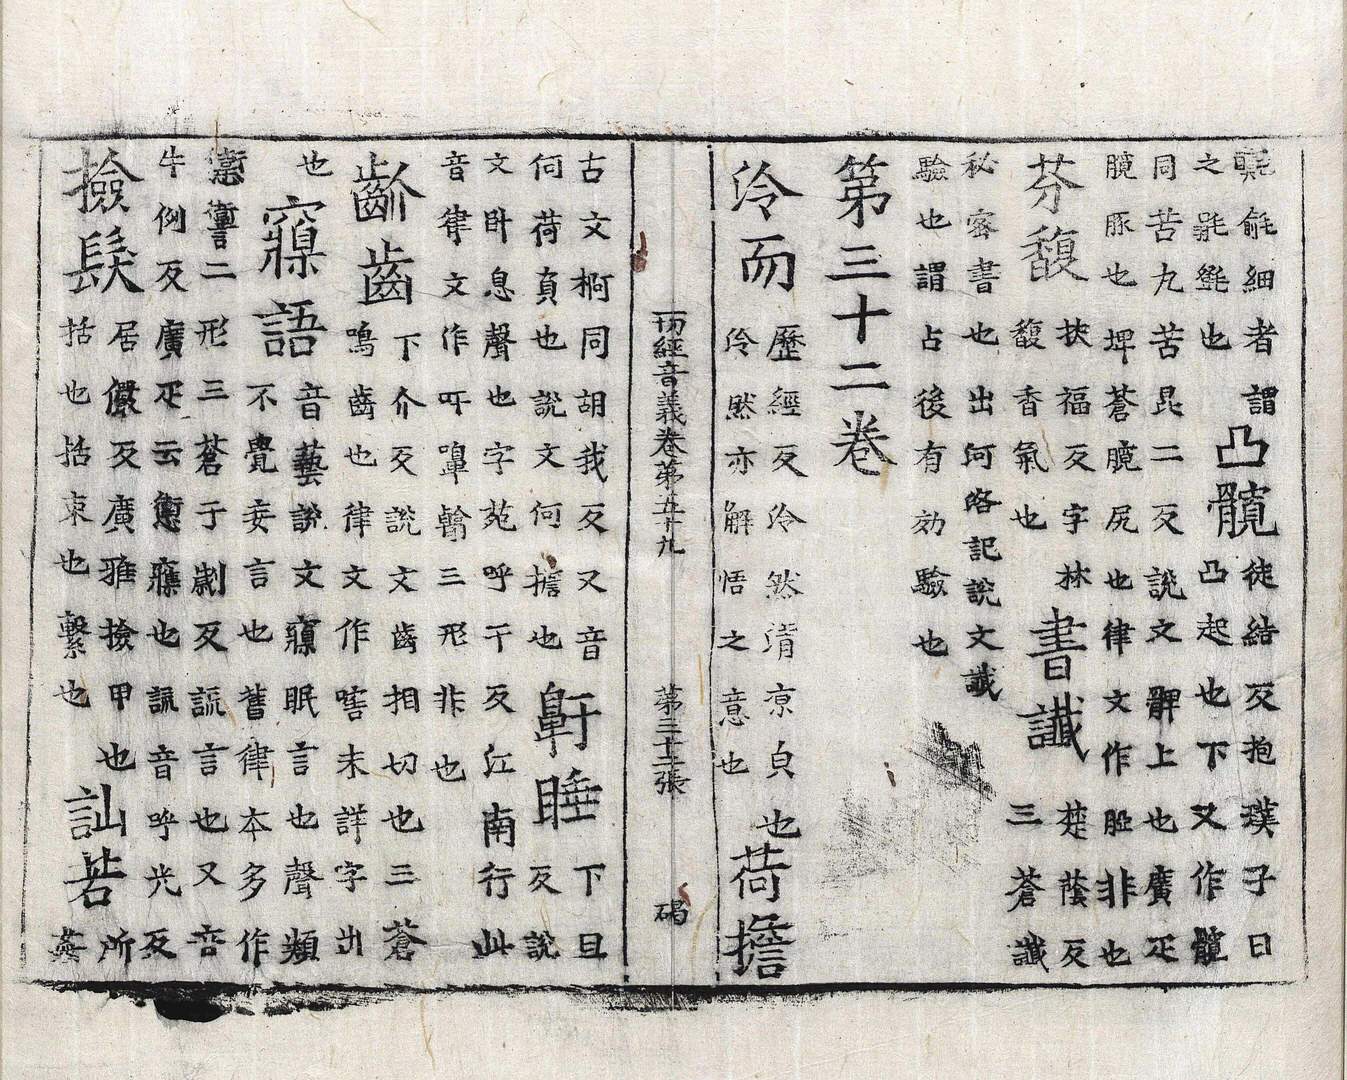 毾㲪細者謂
之㲪㲪也
凸髖
徒結反抱璞子曰
凸起也下又作髖
同苦九苦昆二反說文髀上也廣疋
臗豚也埤蒼臗尻也律文作䏣非也
芬馥
扶福反字林
馥香氣也
書讖
楚蔭反
三蒼讖
秘密書也出何啚記說文讖
驗也謂占後有効驗也
第三十二卷
泠而
歷經反泠然清凉皃也
伶然亦解悟之意也
荷擔
古文㰤同胡我反又音
何荷負也說文何擔也
鼾睡
下旦
反說
文卧息聲也字苑呼干反江南行此
音律文作吁嚊䎉三形非也
齘齒
下介反說文齒相切也三蒼
鳴齒也律文作嘊未詳字出
也
寱語
音藝說文寱眠言也聲類
不覺妄言也舊律本多作
㦣讆二形三蒼于劌反謊言也又音
牛例反廣疋云㦣寱也謊音呼光反
撿髮
居儼反廣雅撿甲也
括也括束也繫也
訕若
所
姦
一切經音義卷第五十九
第三十二張
碣